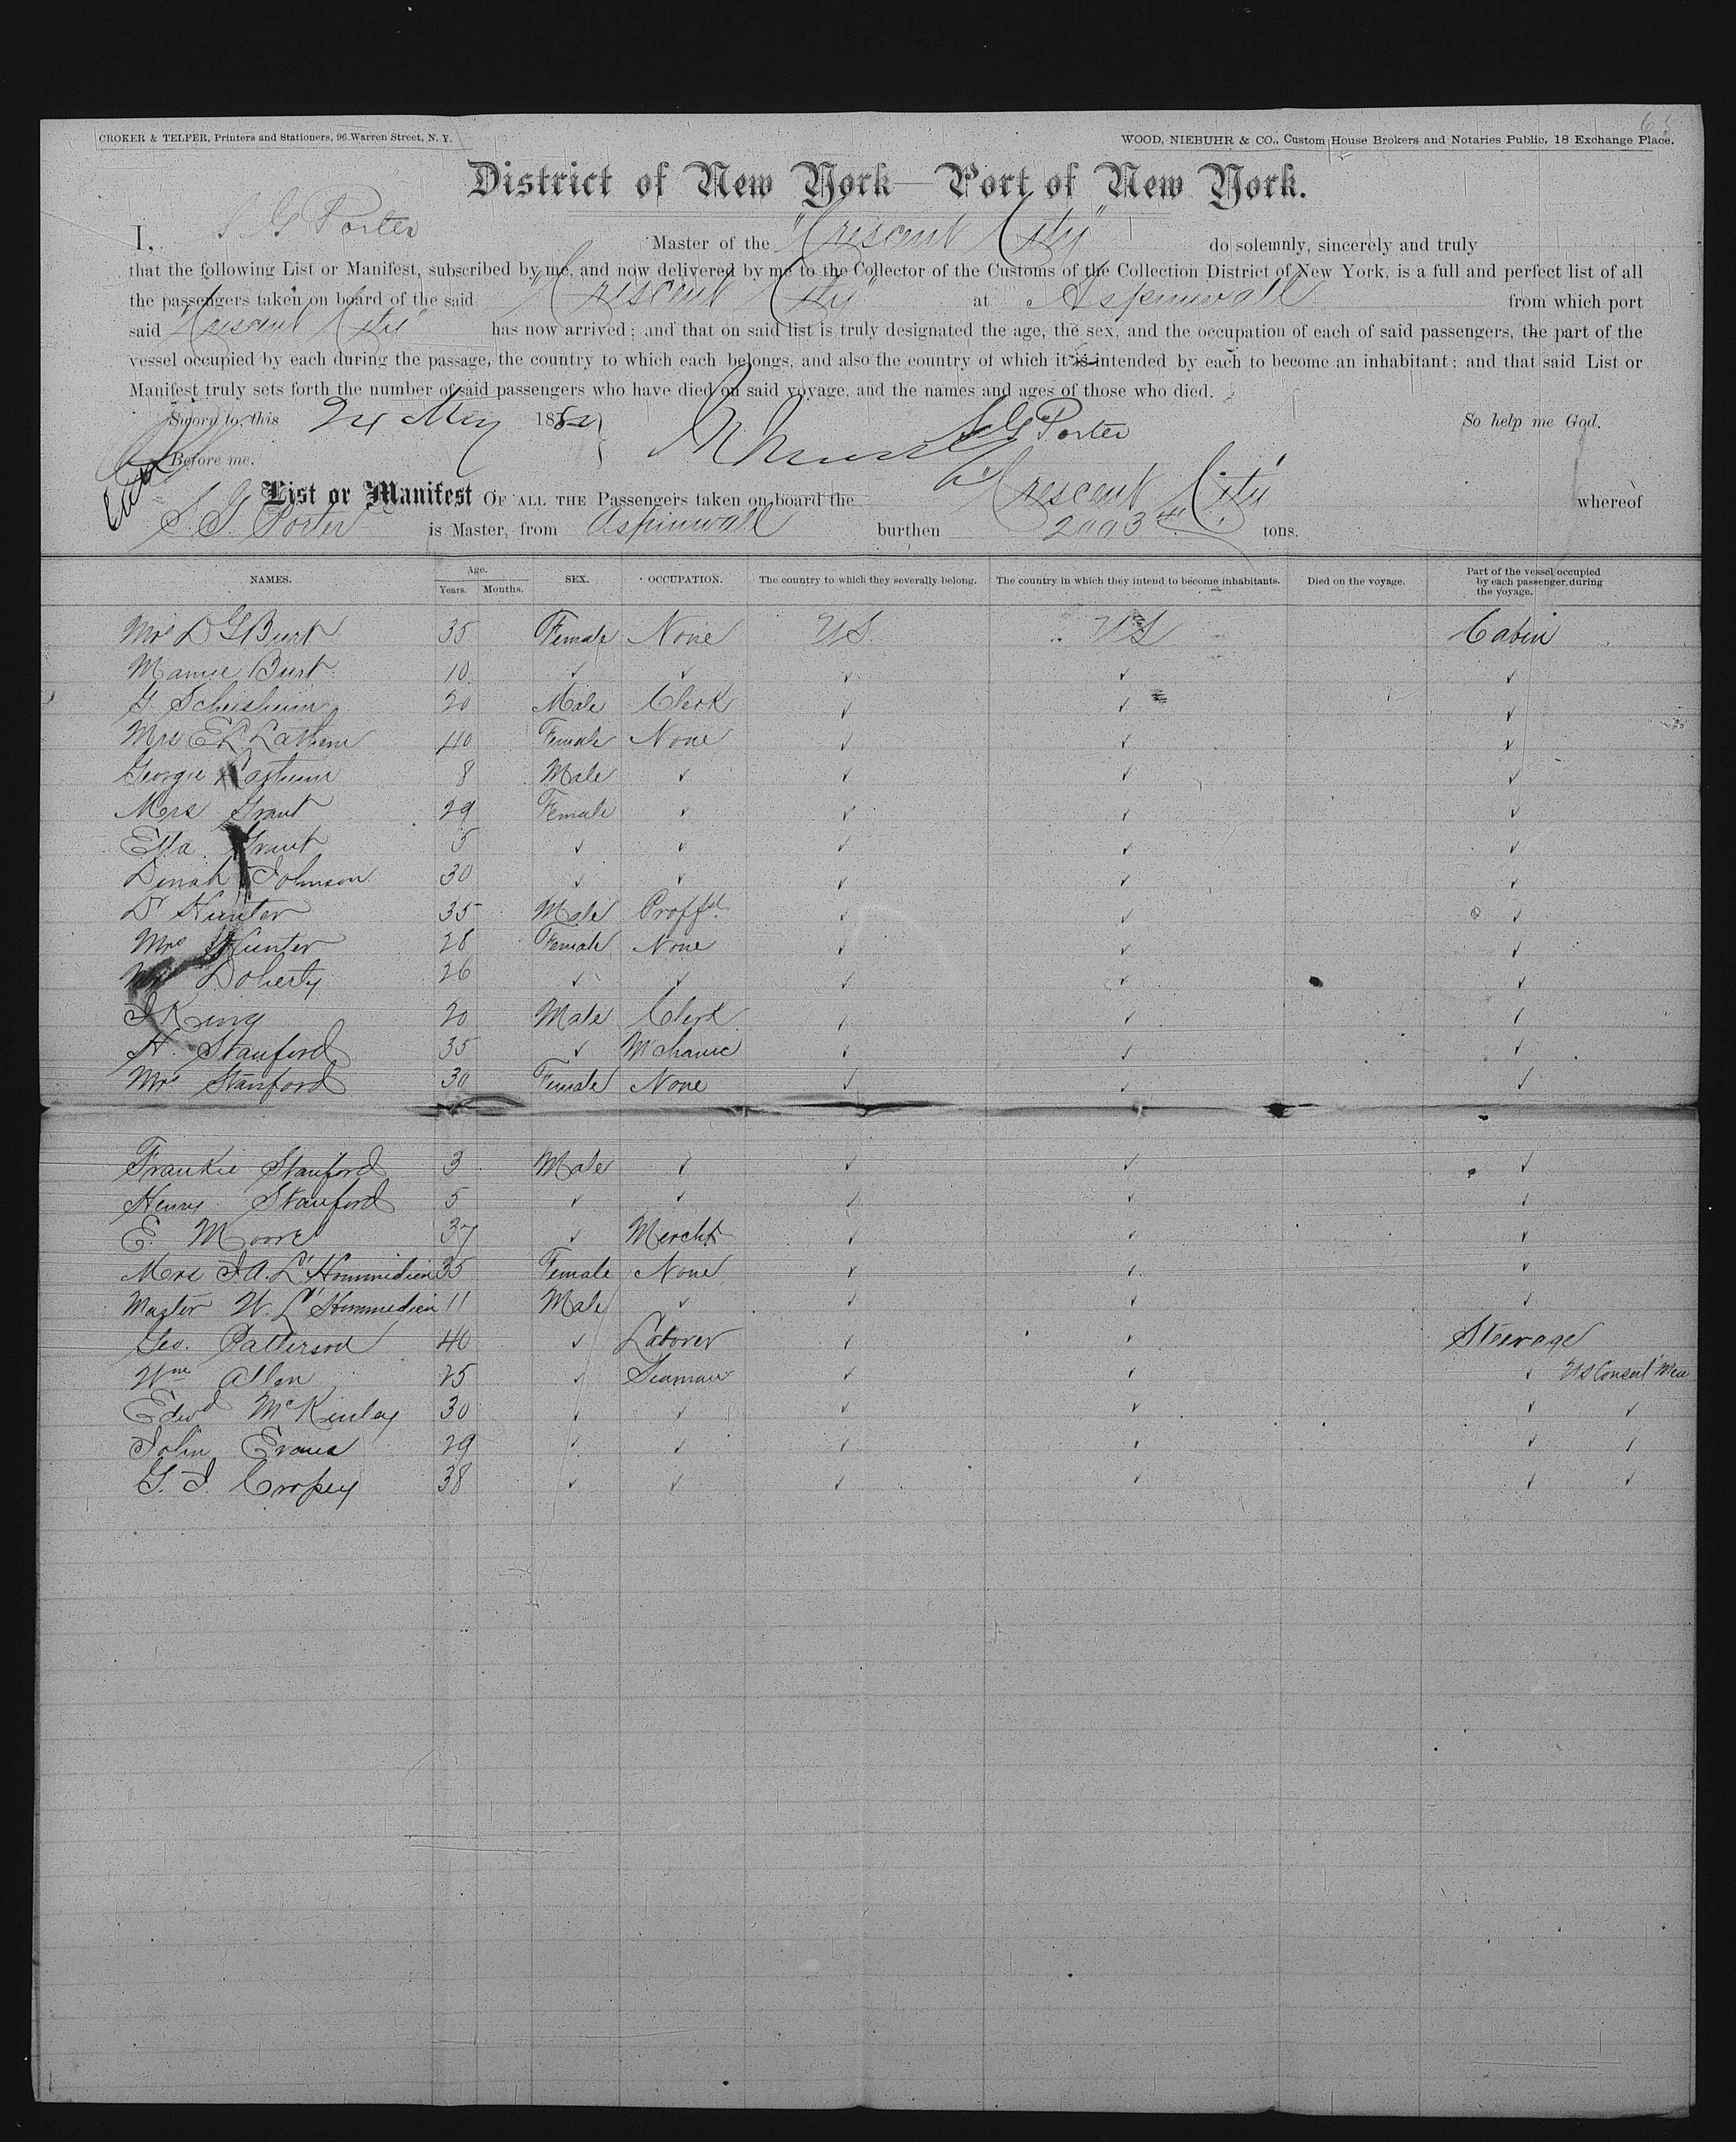 CROKER & TELFER, Printers and Stationers, 96 Warren Street, N. Y.
WOOD, NIEBUHR & CO., Custom House Brokers and Notaries Public, 18 Exchange Place.
District of New York—Port of New York.
I, S G Porter Master of the "Crescent City" do solemnly, sincerely and truly
that the following List or Manifest, subscribed by me, and now delivered by me to the Collector of the Customs of the Collection District of New York, is a full and perfect list of all
the passengers taken on board of the said "Crescent City" at Aspinwall from which port
said Crescent City has now arrived; and that on said list is truly designated the age, the sex, and the occupation of each of said passengers, the part of the
vessel occupied by each during the passage, the country to which each belongs, and also the country of which it is intended by each to become an inhabitant; and that said List or
Manifest truly sets forth the number of said passengers who have died on said voyage, and the names and ages of those who died.
Sworn to, this 24 May 188 S G Porter So help me God.
Before me.
List or Manifest OF ALL THE Passengers taken on board the "Crescent City" whereof
S. G. Porter is Master, from Aspinwall burthen 2003 tons.
NAMES. Age. Years. Months. SEX. OCCUPATION. The country to which they severally belong. The country in which they intend to become inhabitants. Died on the voyage. Part of the vessel occupied by each passenger, during the voyage.
Mrs D G Burt 35 Female None US. US Cabin
Mamie Burt 10 ✓ ✓ ✓ ✓ ✓
G. 20 Male Clerk ✓ ✓ ✓
Mrs E L Latham 40 Female None ✓ ✓ ✓
Georgie Latham 8 Male ✓ ✓ ✓ ✓
Mrs Grant 29 Female ✓ ✓ ✓ ✓
Ella Grant 5 ✓ ✓ ✓ ✓ ✓
Dinah Johnson 30 ✓ ✓ ✓ ✓ ✓
Dr Hunter 35 Male ✓ ✓ ✓
Mrs Hunter 28 Female None ✓ ✓ ✓
Mrs Doherty 26 ✓ ✓ ✓ ✓ ✓
J King 20 Male Clerk ✓ ✓ ✓
H. Stanford 35 ✓ Mchanic ✓ ✓ ✓
Mrs Stanford 30 Female None ✓ ✓ ✓
Frankie Stanford 3 Male ✓ ✓ ✓ ✓
Henry Stanford 5 ✓ ✓ ✓ ✓ ✓
E. Moore 37 ✓ Mercht ✓ ✓ ✓
Mrs J. A. L'Hommedieu 35 Female None ✓ ✓ ✓
Master W. L'Hommedieu 11 Male ✓ ✓ ✓ ✓
Geo. Patterson 40 ✓ Laborer ✓ ✓ Steerage
Wm Allen 25 ✓ Seaman ✓ ✓ ✓ US Consul Men
Edwd McKinlay 30 ✓ ✓ ✓ ✓ ✓ ✓
John Evans 29 ✓ ✓ ✓ ✓ ✓ ✓
G. J. Cropey 38 ✓ ✓ ✓ ✓ ✓ ✓